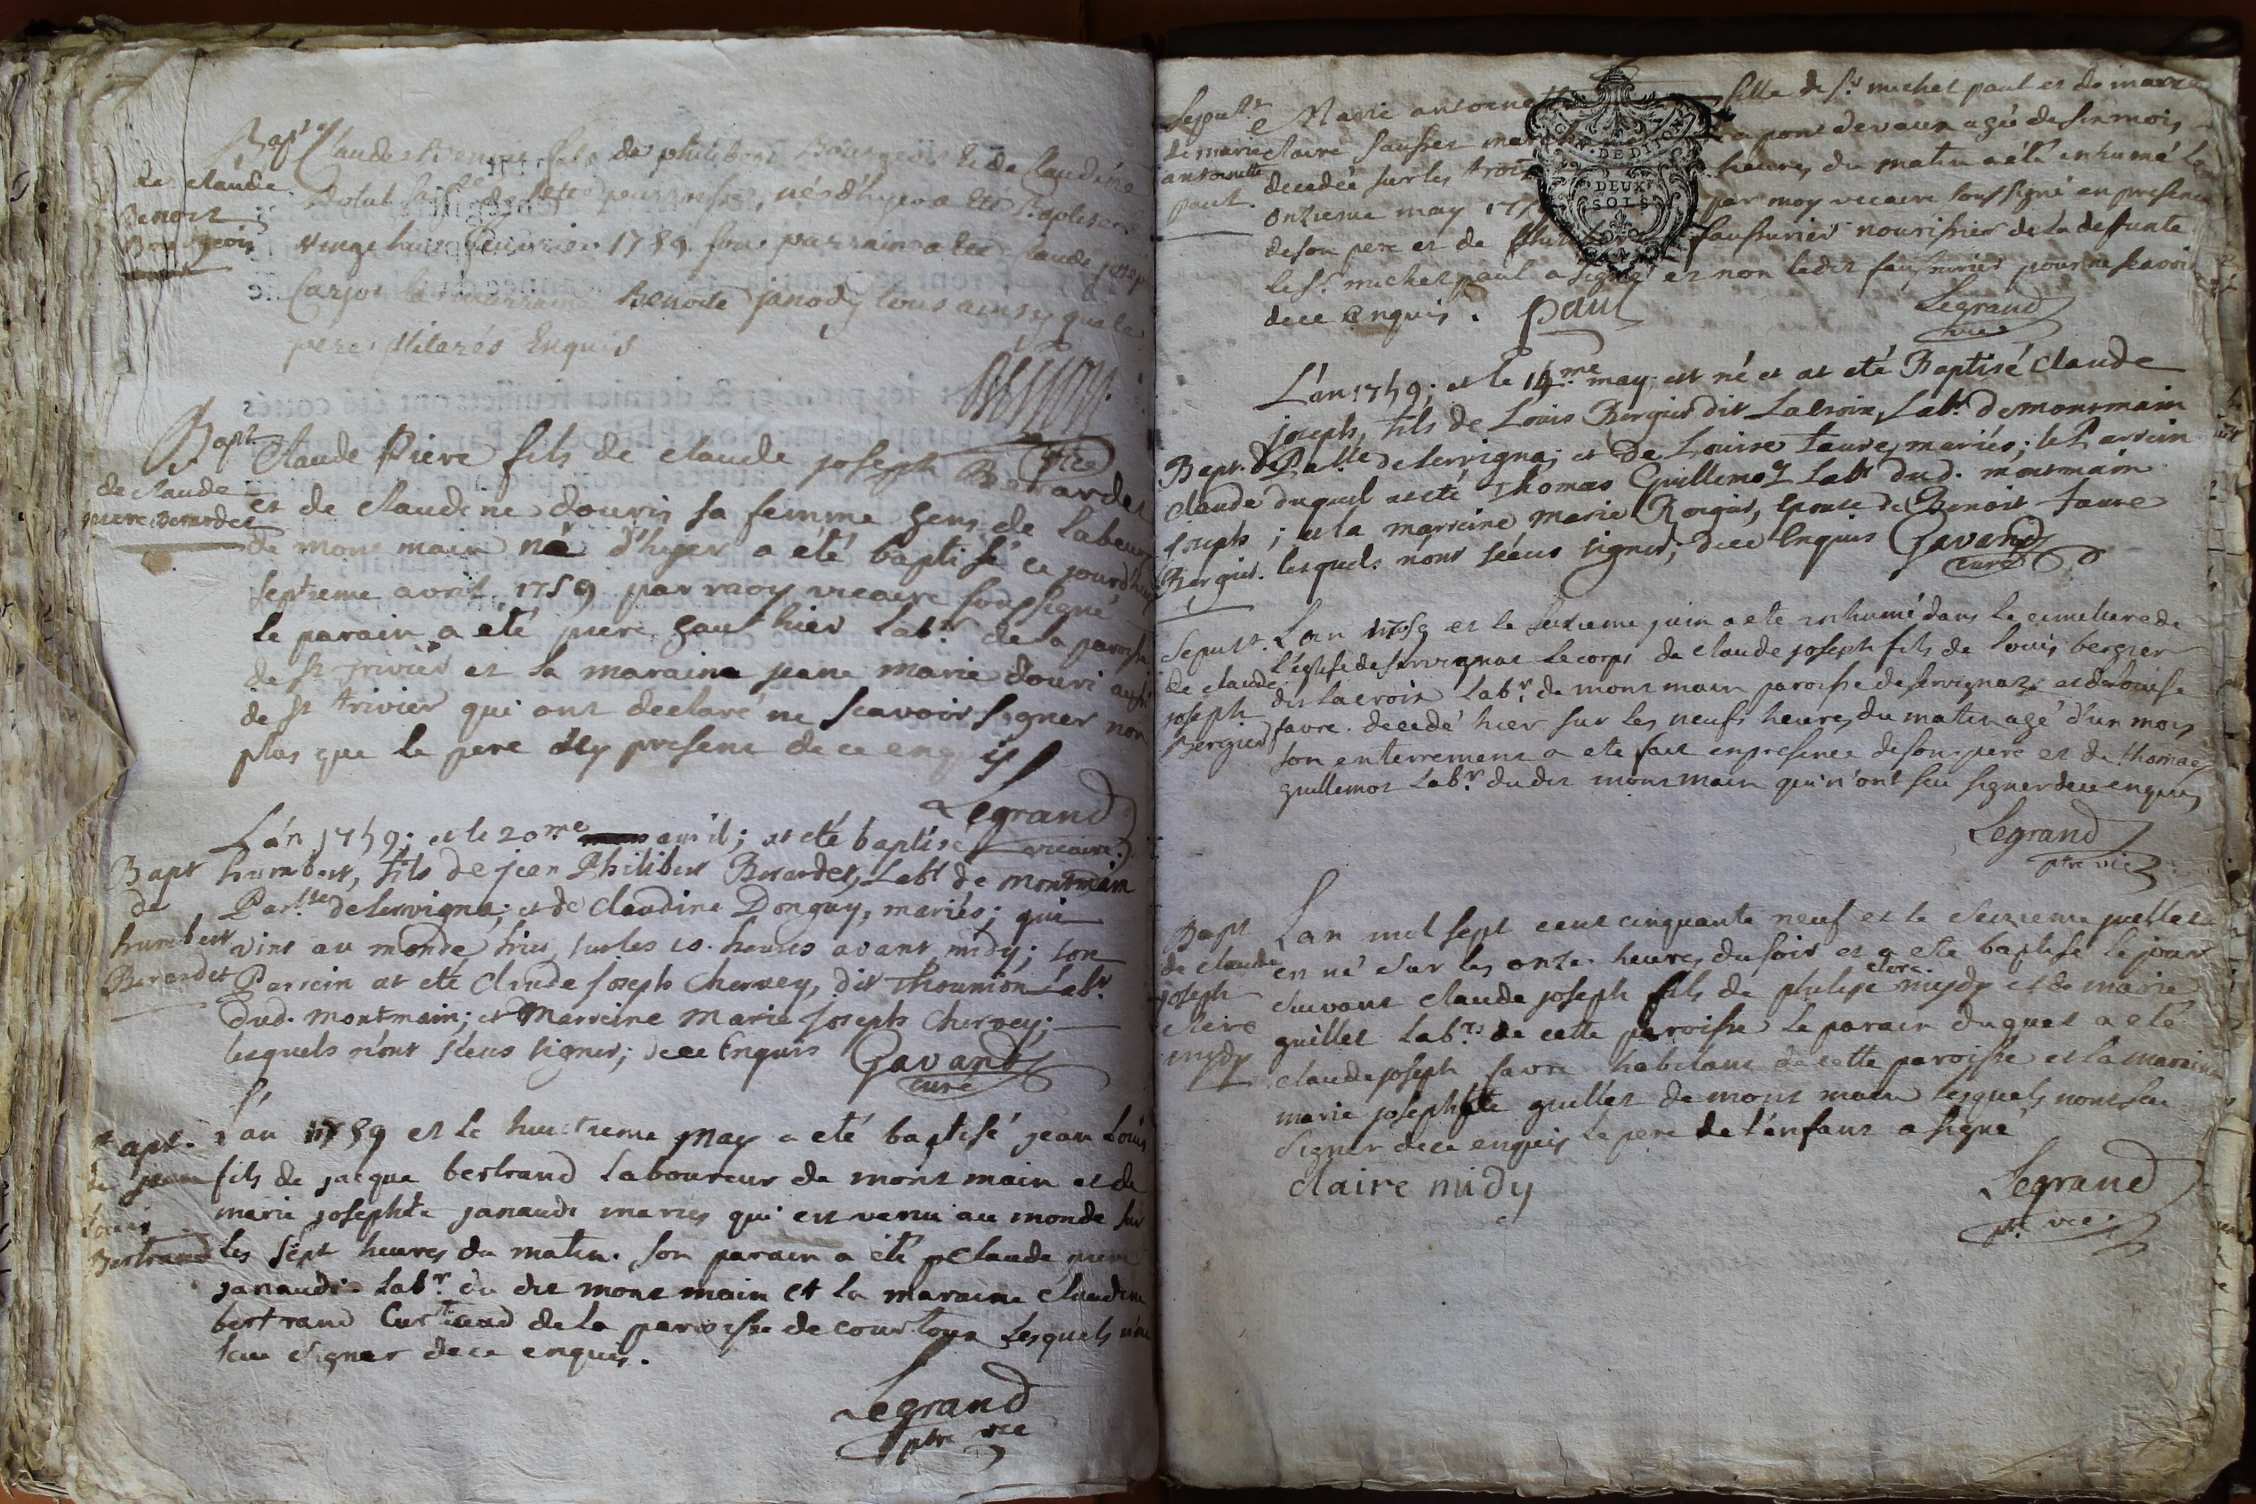 Bapt
de claude
Benoit
Bourgeois
Claude Benoit fils de philibert Bourgeois et de Claudine
nés d'hyer a eté Baptisé
vingt huit fevrier 1759 son parrain a eté claude joseph
Carjot la marraine Benoite janody tous ainsy que le
pere illiterés Enquis
vice
Bapt
de claude
piere Berardet
Claude Piere fils de claude joseph Berardet
et de claudine douris sa femme gens de labeur
de mont main né d'hyer a été baptisé ce jourdhuy
septieme avril 1759 par moy vicaire soussigné
le parain a eté piere gauthier labr. de la paroisse
de st trivier et la maraine jeane marie douri aussi
de st trivier qui ont declaré ne scavoir signer non
plus que le pere icy present de ce enquis
Legrand
vicaire
Bapt
de
humbert
Berardet
L'an 1759; et le 20me avril; at eté baptisé
humbert, fils de jean Philibert Berardet, Labr de montmain
Par.sse de servigna; et de claudine Donguy, mariés; qui
vint au monde hier, sur les 10. heures avant midy; son
Parrein at eté Claude joseph Chervey, dit Thoumon Labr.
dud. montmain; et Marreine Marie joseph Chervey;
lesquels n'ont scèus signer; de ce Enquis
Gavand
curé
Bapt.
de jean
Louis
Bertrand
L'an 1759 et le huitieme may a eté baptisé jean Louis
fils de jacque bertrand laboureur de mont main et de
marie josephte janaudi mariés qui est venu au monde sur
les sept heures du matin. son parain a été claude piere
janaudi labr. du dit mont main et la maraine claudine
bertrand de la paroisse de courtoux lesquels n'ont
scu signer de ce enquis.
Legrand
ptre vce
Sepult.
de marie
antoinette
paul.
Marie antoinette fille de sr. michel paul et de marie
claire a pont de vaux agée de six mois
decedée sur les trois heures du matin a été inhumé le
onzieme may par moy vicaire soussigné en presence
de son pere et de faussurier nourissier de la deffunte
le sr. michel paul a signé et non ledit faussurier pour ne scavoir
de ce enquis. Paul
Legrand
vice
GEN. DE DIJON
DEUX
SOLS
Bapt. de
claude
joseph
Bergier.
L'an 1759; et le 14me may est né et at eté Baptisé claude
joseph, fils de Louis Bergier dit Lacroix, Labr. de montmain
Par.sse de servigna; et de Louise faure, mariés; le Parrein
duquel at eté Thomas Guillemot Labr dud. montmain
; et la marreine marie Bergier, epouse de Benoit faure
lesquels n'ont scèus signer; de ce Enquis Gavand
curé
Sepult.
de claude
joseph
Bergier
L'an 1759 et le sixieme juin a eté inhumé dans le cimetiere de
l'église de servignat le corps de claude joseph fils de louis bergier
dit lacroix labr. de mont main paroisse de servignat et de louise
favre. decedé hier sur les neufs heures du matin agé d'un mois
son enterrement a eté fait en presence de son pere et de thomas
guillemot labr. du dit mont main qui n'ont scu signer de ce enquis
Legrand
ptre vice
Bapt
de claude
joseph
claire
mydy
L'an mil sept cent cinquante neuf et le seizieme juillet
est né sur les onze heures du soir et a eté baptisé le jour
suivant claude joseph fils de philipe claire mydy et de marie
guillet labrs de cette paroisse le parain duquel a eté
claude joseph favre habitant de cette paroisse et la maraine
marie josephte guillet de mont main lesquels n'ont scu
signer de ce enquis le pere de l'enfant a signé
claire midy
Legrand
ptr. vce.